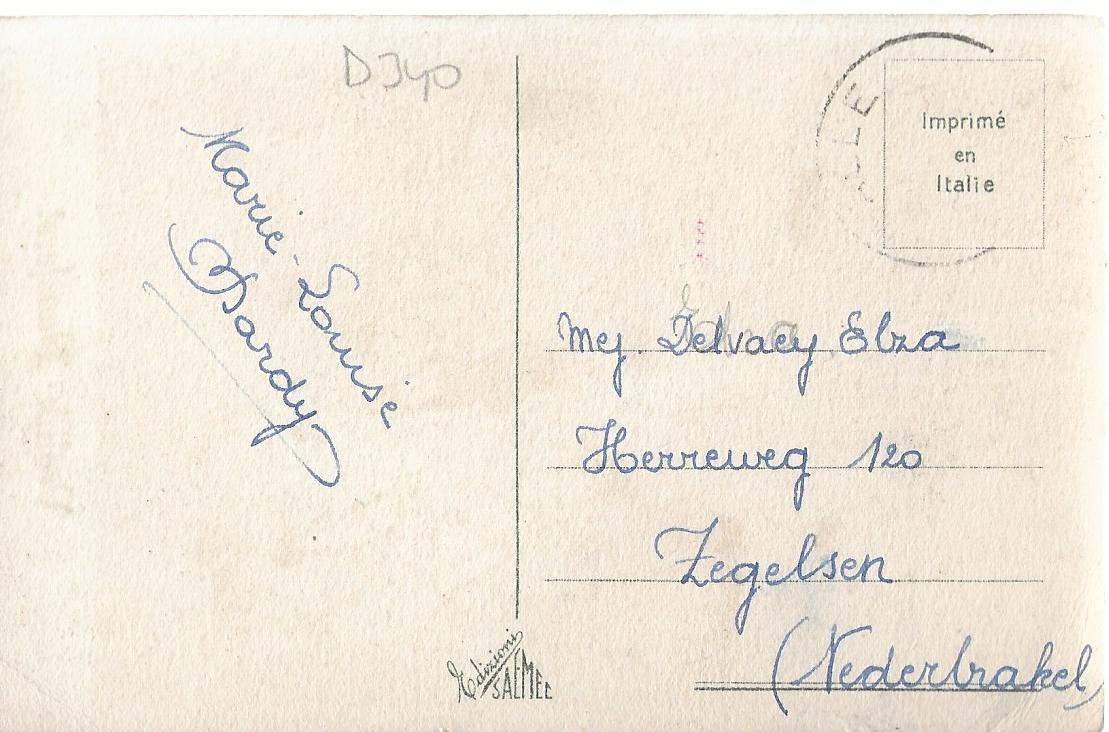 D340
Marie-Louise
Dardy
LLE
Imprimé
en
Italie
Mej. Delvaey Elza
Herreweg 120
Zegelsen
(Nederbrakel)
Edizioni
SAEMEC